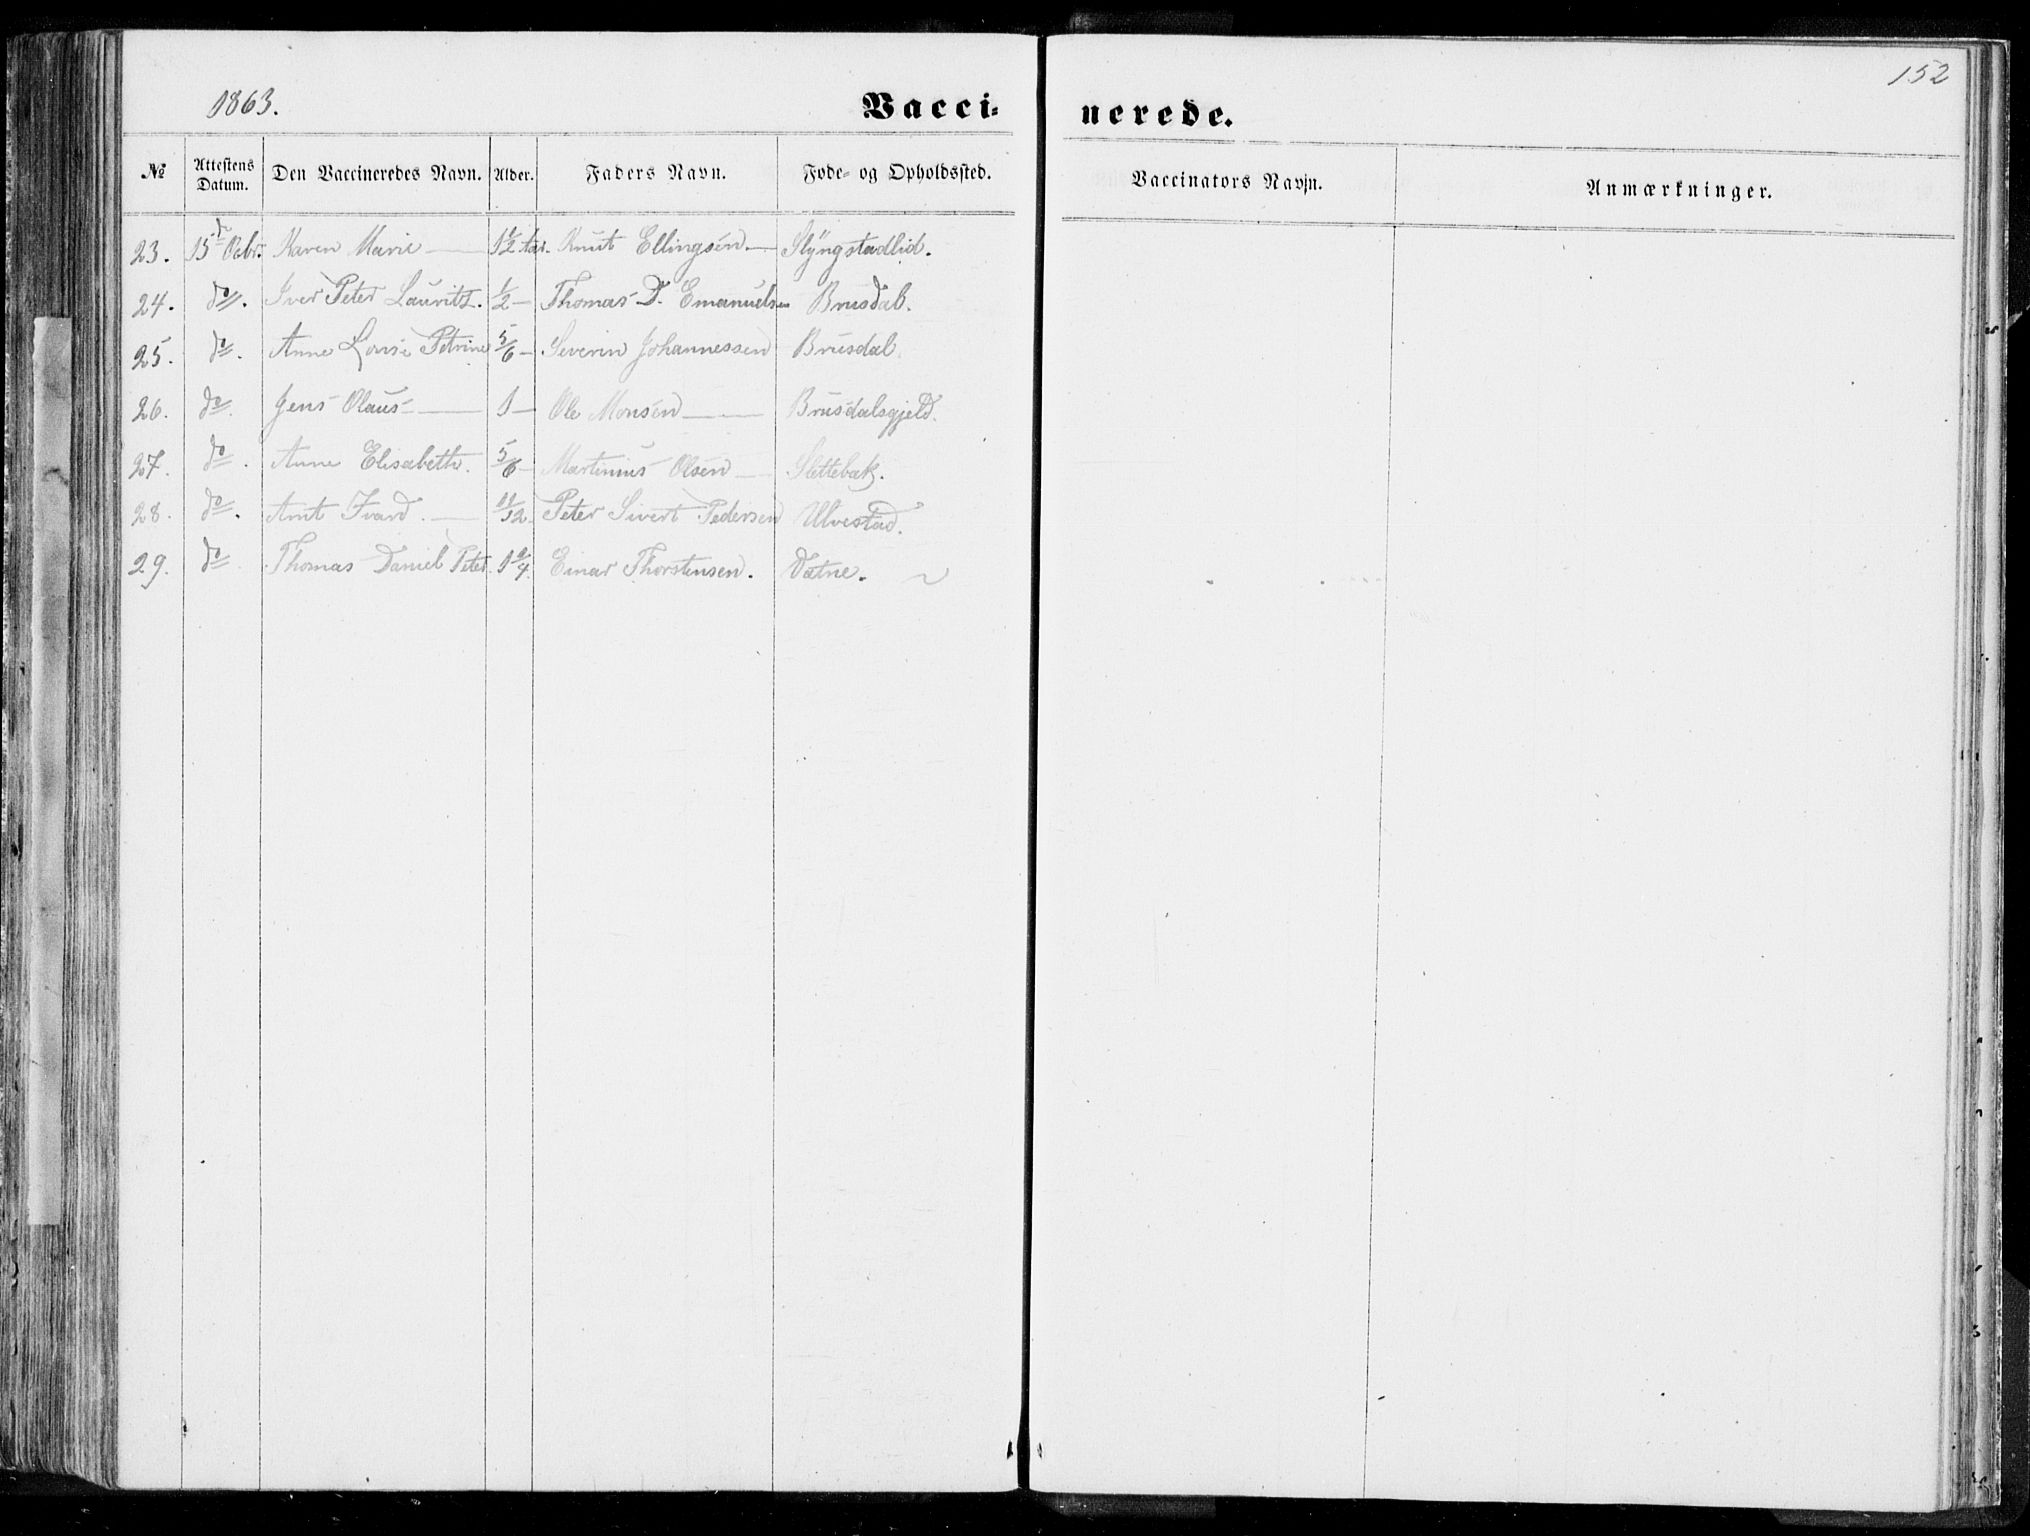 152
1863.
Vacci-
nerede.
№ Attestens Datum. Den Vaccineredes Navn. Alder. Faders Navn. Føde- og Opholdssted. Vaccinators Navn. Anmærkninger.
23. 15de Octbr. Karen Marie — 1 1/2 Aar. Knut Ellingsen — Slyngstadlid.
24. do. Iver Peter Lauritz. 1/2 — Thomas D. Emanuelsen Brusdal.
25. do. Anne Lovise Petrine 5/6 — Severin Johannessen Brusdal.
26. do. Jens Olaus — 1 — Ole Monsen — Brusdalsgjeld.
27. do. Anne Elisabeth. 5/6 — Martinius Olsen — Slettebak.
28. do. Amt Ivard. — 11/12. Peter Sivert Pedersen Ulvestad.
29. do. Thomas Daniel Peter. Einar Thorstensen. Vatne.